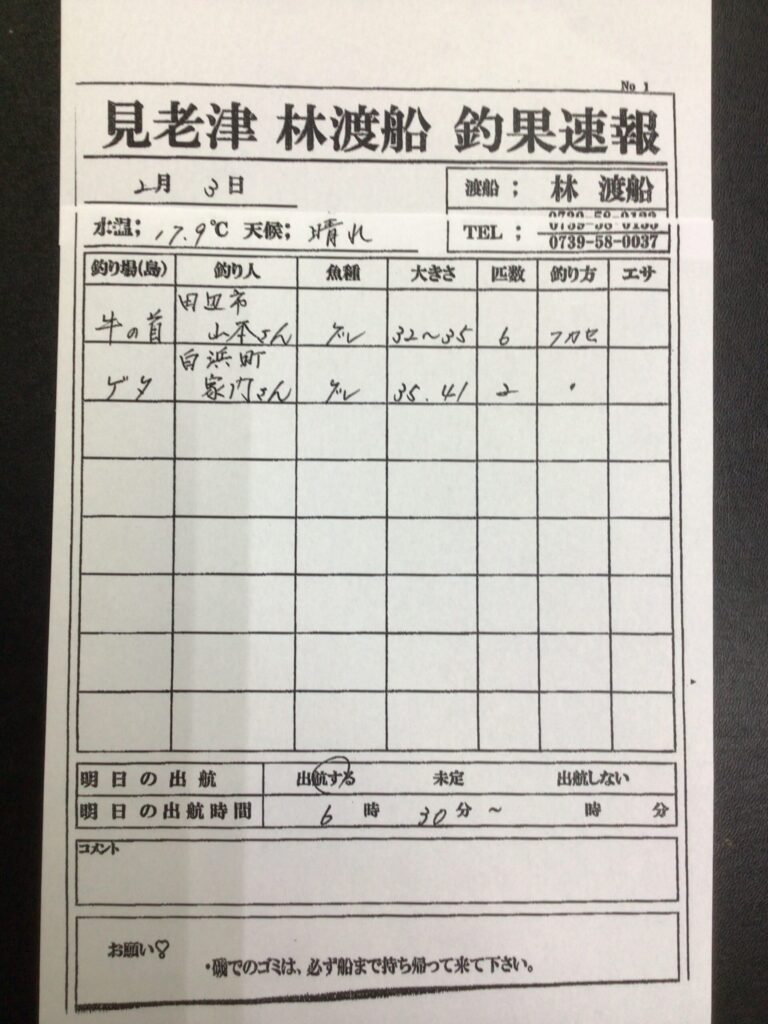 No 1
見老津 林渡船 釣果速報
2月 3日
渡船; 林 渡船
水温; 17.9℃ 天候; 晴れ
TEL; 0739-58-0037
釣り場(島) 釣り人 魚種 大きさ 匹数 釣り方 エサ
田辺市
牛の首 山本さん グレ 32〜35 6 フカセ
白浜町
ゲタ 家内さん グレ 35.41 2 〃
明日の出航 出航する 未定 出航しない
明日の出航時間 6時 30分 〜 時 分
コメント
お願い♡
・磯でのゴミは、必ず船まで持ち帰って来て下さい。